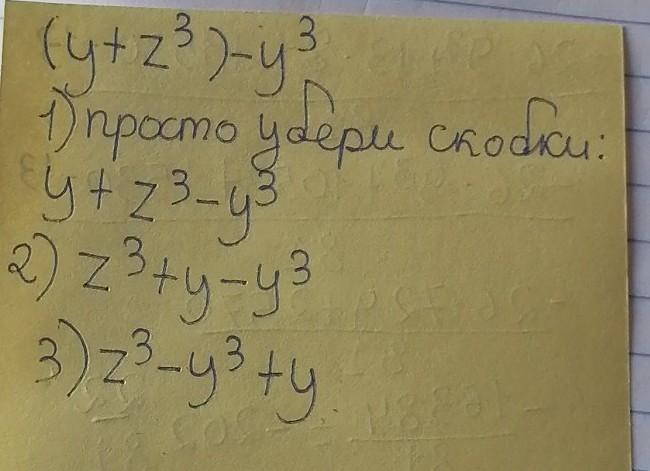 (y+z³)-y³
1) просто убери скобки:
y+z³-y³
2) z³+y-y³
3) z³-y³+y